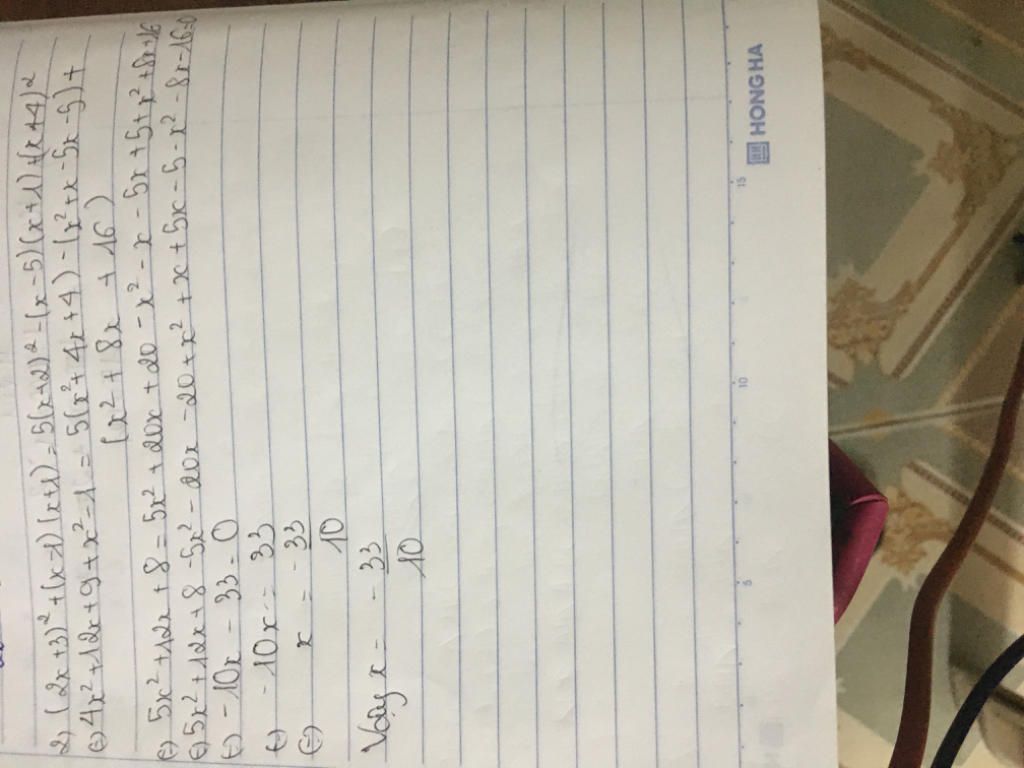 2) (2x+3)² + (x-1)(x+1) = 5(x+2)² - (x-5)(x+1) + (x+4)²
(=) 4x² + 12x + 9 + x² - 1 = 5(x² + 4x + 4) - (x² + x - 5x - 5) +
(x² + 8x + 16)
(=) 5x² + 12x + 8 = 5x² + 20x + 20 - x² - x - 5x + 5 + x² + 8x + 16
(=) 5x² + 12x + 8 - 5x² - 20x - 20 + x² + x + 5x - 5 - x² - 8x - 16 = 0
(=) -10x - 33 = 0
(=) -10x = 33
(=) x = -33/10
Vậy x = -33/10
5 10 15
HONG HA